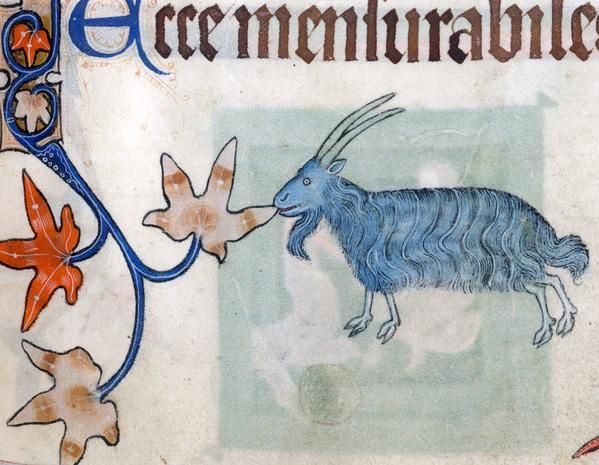 Ecce menſurabiles